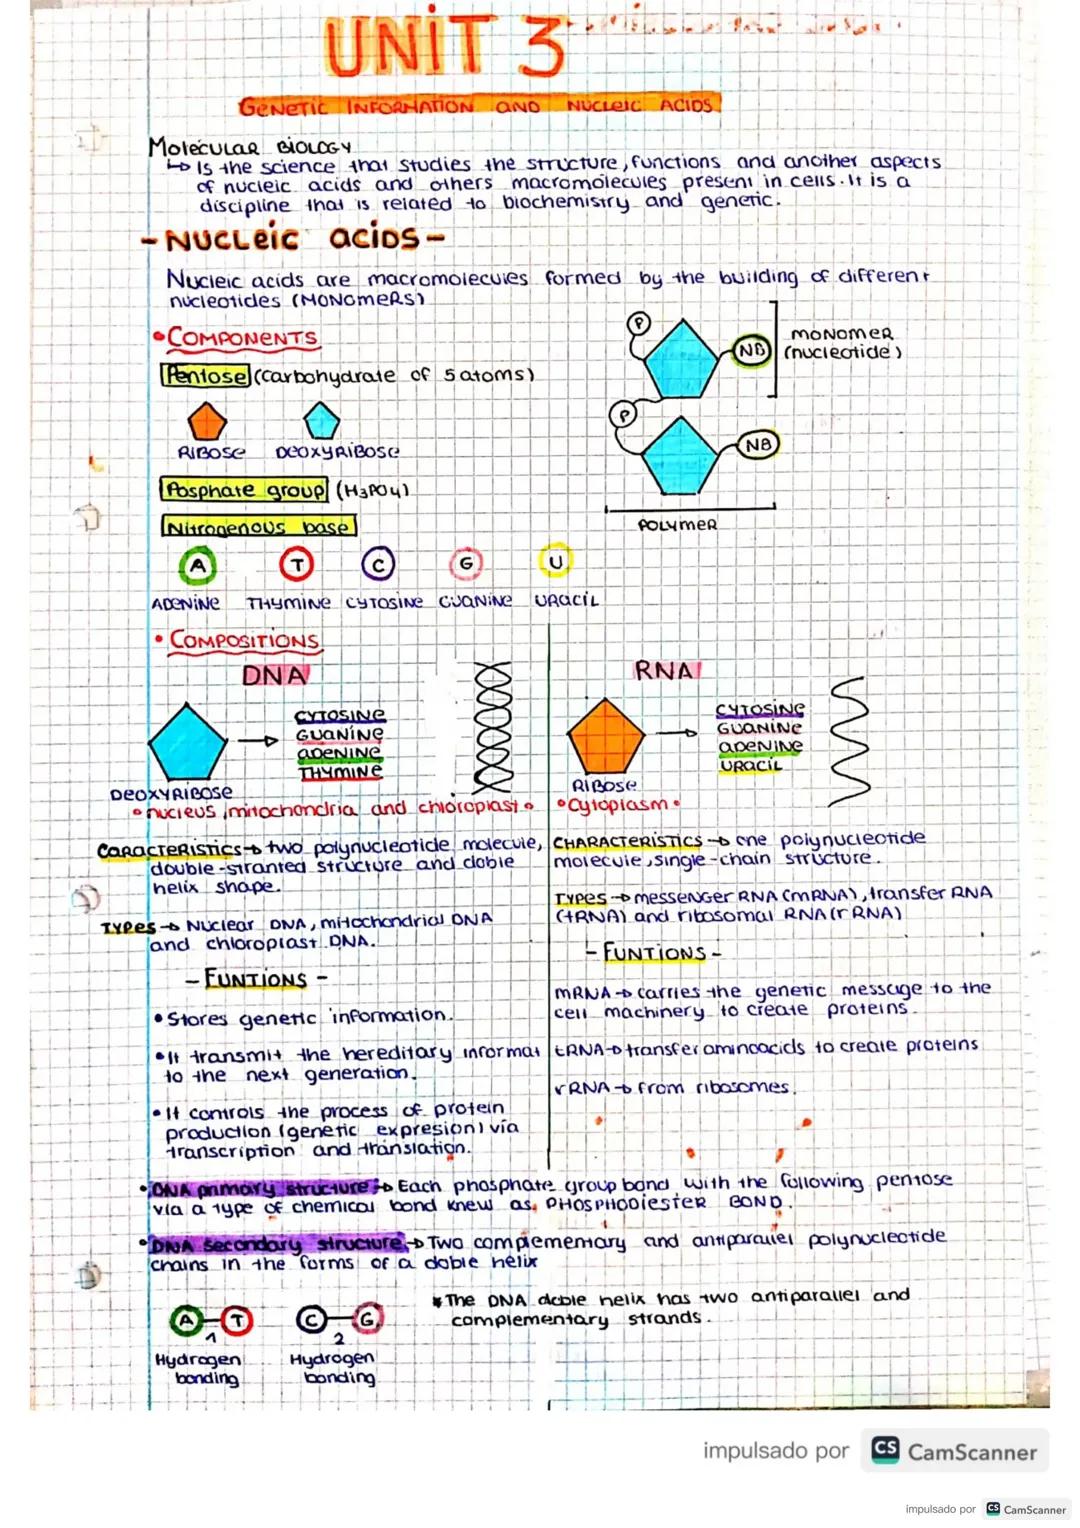 UNIT 3
GENETIC INFORMATION AND NUCLEIC ACIDS
MOLECULAR BIOLOGY
↳ Is the science that studies the structure, functions and another aspects
of nucleic acids and others macromolecules present in cells. It is a
discipline that is related to biochemistry and genetic.
- NUCLEIC ACIDS -
Nucleic acids are macromolecules formed by the building of different
nucleotides (MONOMERS)
• COMPONENTS
Pentose (carbohydrate of 5 atoms)
RIBOSE DEOXYRIBOSE
Posphate group (H3PO4)
Nitrogenous base
P
NB
MONOMER
(nucleotide)
P
NB
POLYMER
A T C G U
ADENINE THYMINE CYTOSINE GUANINE URACIL
• COMPOSITIONS
DNA
CYTOSINE
GUANINE
ADENINE
THYMINE
DEOXYRIBOSE
• nucleus, mitochondria and chloroplast •
CARACTERISTICS → two polynucleotide molecule,
double-stranted structure and doble
helix shape.
TYPES → Nuclear DNA, mitochondrial DNA
and chloroplast DNA.
- FUNTIONS -
• Stores genetic information.
• It transmit the hereditary informat
to the next generation.
• It controls the process of protein
production (genetic expresion) via
transcription and translation.
RNA
CYTOSINE
GUANINE
ADENINE
URACIL
RIBOSE
• Cytoplasm •
CHARACTERISTICS → one polynucleotide
molecule, single-chain structure.
TYPES → messenger RNA (mRNA), transfer RNA
(tRNA) and ribosomal RNA (rRNA)
- FUNTIONS -
mRNA → carries the genetic message to the
cell machinery to create proteins.
tRNA → transfer aminoacids to create proteins
rRNA → from ribosomes.
• DNA primary structure → Each phosphate group bond with the following pentose
via a type of chemical bond knew as PHOSPHODIESTER BOND.
• DNA secondary structure → Two complementary and antiparallel polynucleotide
chains in the forms of a doble helix
A T C G
1 2
Hydrogen Hydrogen
bonding bonding
* The DNA doble helix has two antiparallel and
complementary strands.
impulsado por CS CamScanner
impulsado por CS CamScanner